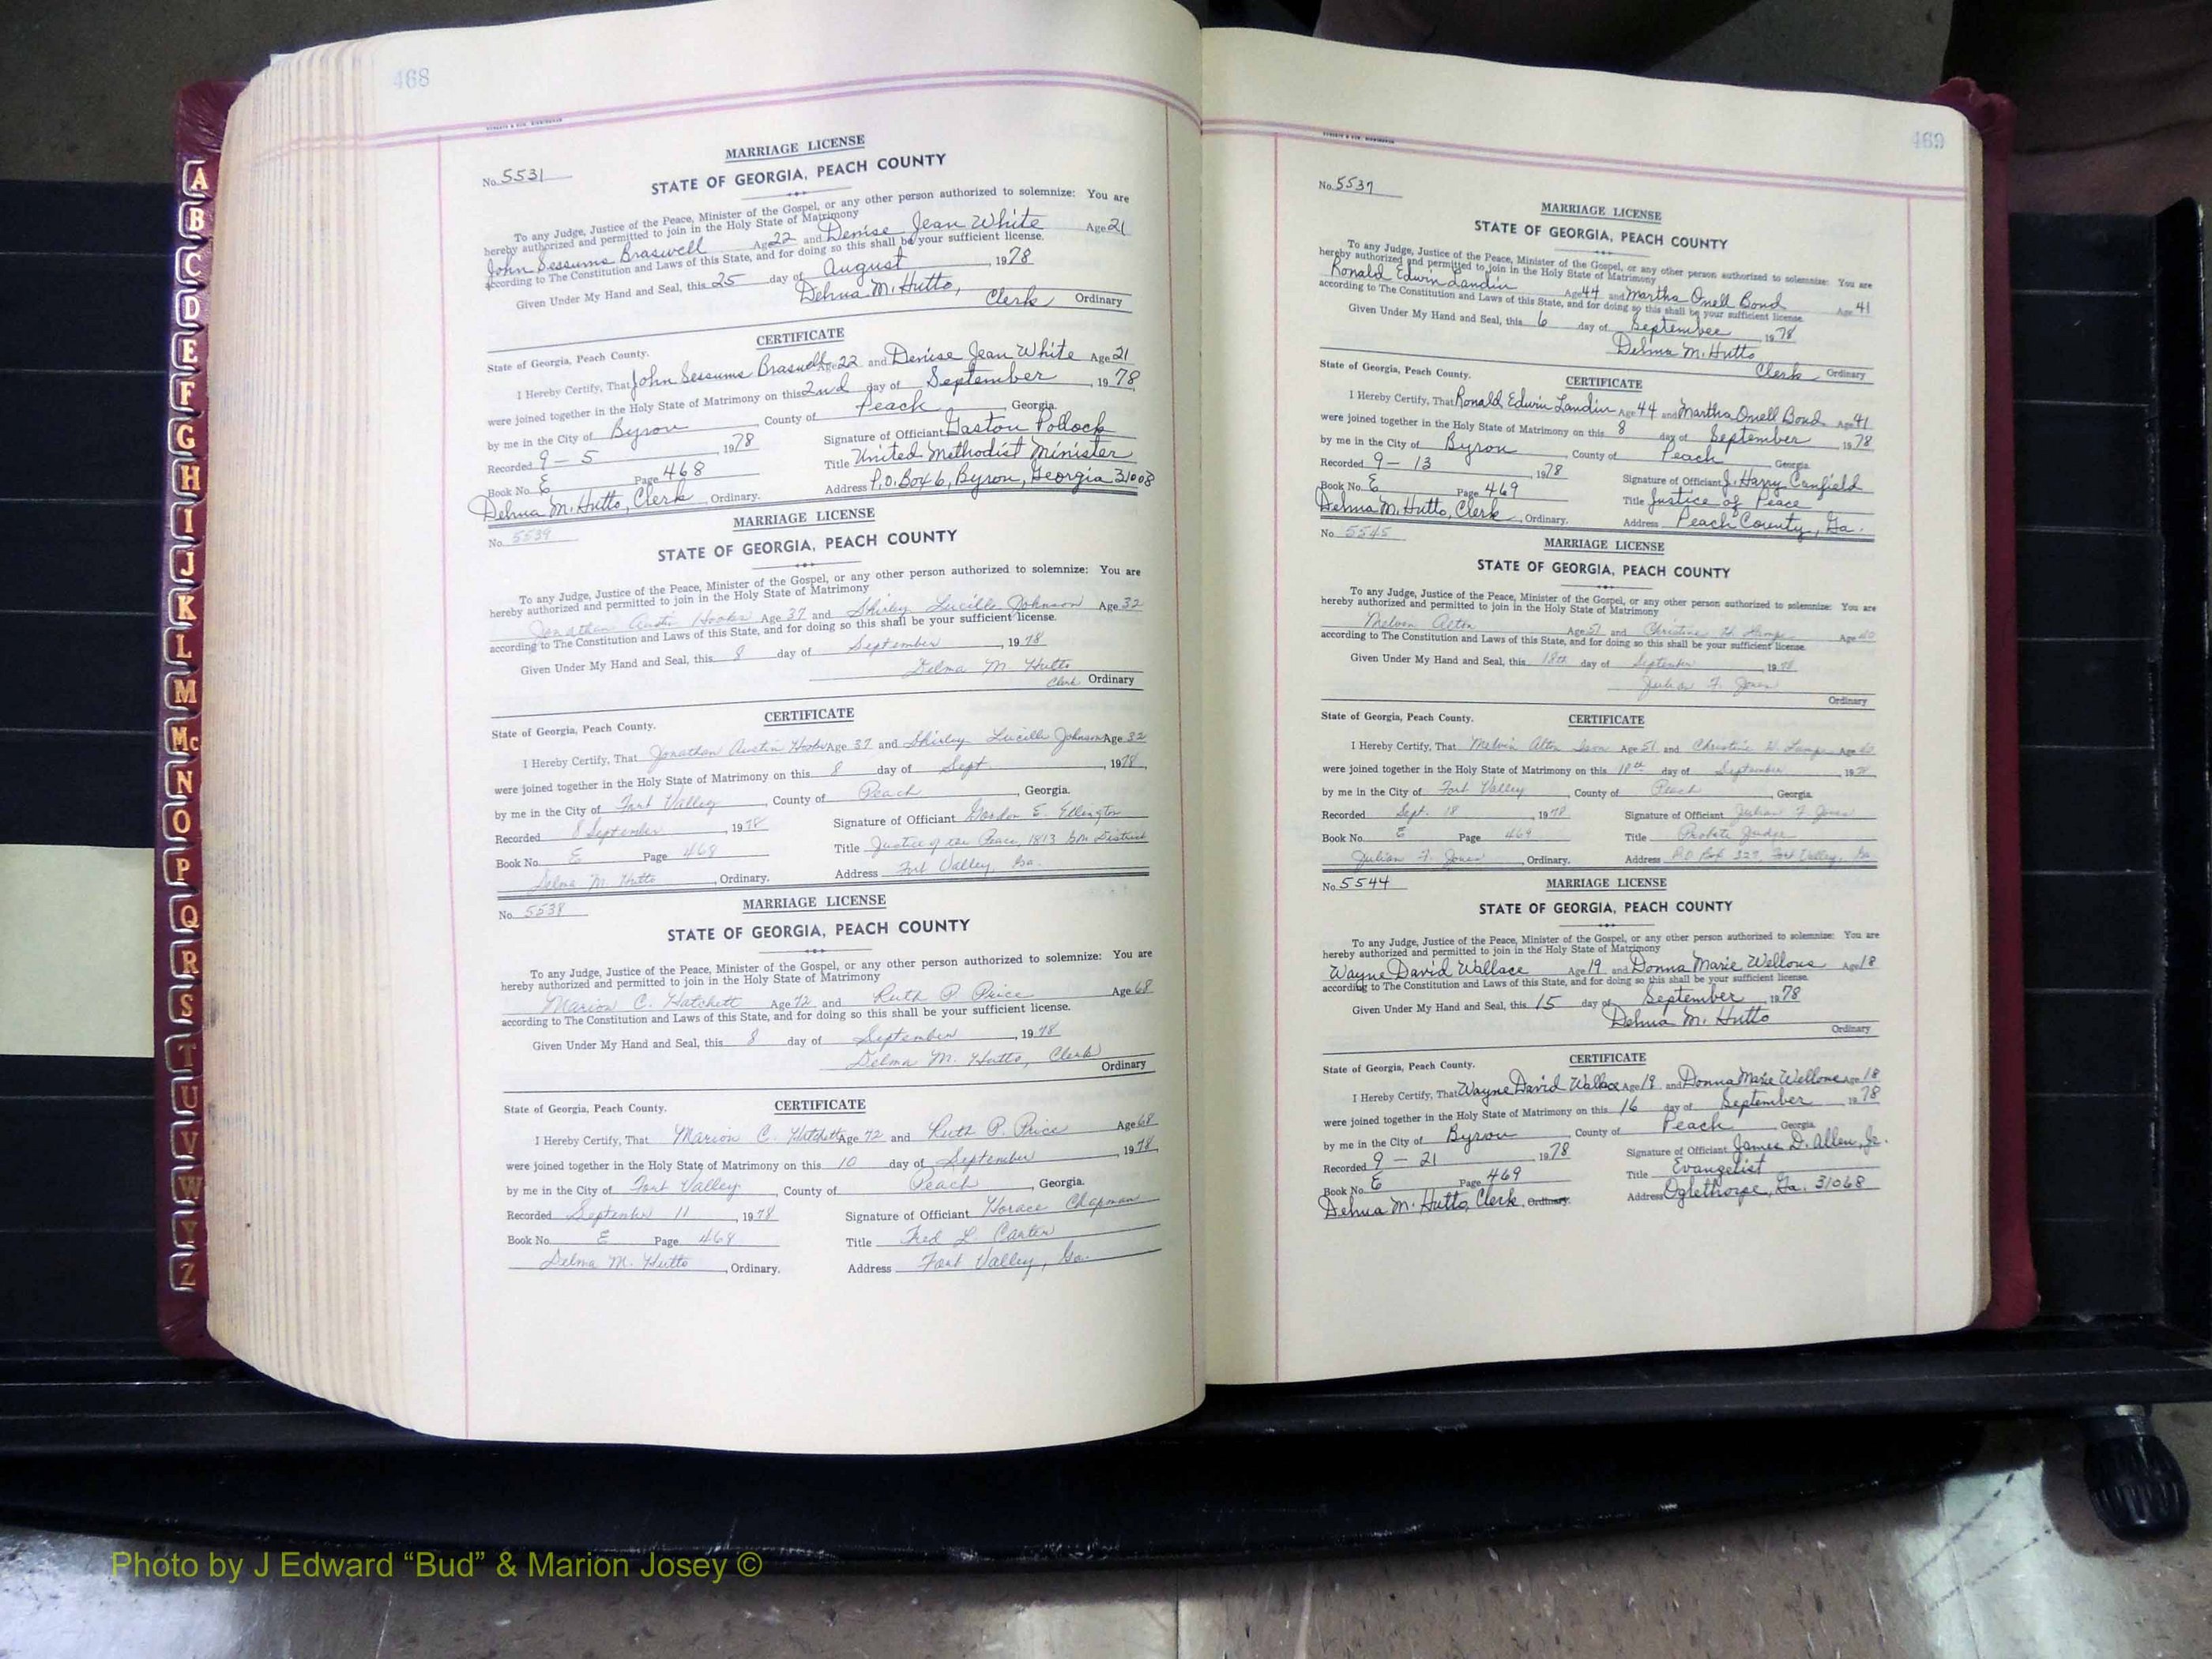 468
MARRIAGE LICENSE
No. 5531
STATE OF GEORGIA, PEACH COUNTY
To any Judge, Justice of the Peace, Minister of the Gospel, or any other person authorized to solemnize: You are
hereby authorized and permitted to join in the Holy State of Matrimony
John Sessums Braswell Age 22 and Denise Jean White Age 21
according to The Constitution and Laws of this State, and for doing so this shall be your sufficient license.
Given Under My Hand and Seal, this 25 day of August, 1978
Delma M. Hutto,
Clerk Ordinary
CERTIFICATE
State of Georgia, Peach County.
I Hereby Certify, That John Sessums Braswell Age 22 and Denise Jean White Age 21
were joined together in the Holy State of Matrimony on this 2nd day of September, 1978,
by me in the City of Byron, County of Peach, Georgia.
Recorded 9-5, 1978
Signature of Officiant Gaston Pollock
Book No. E Page 468
Title United Methodist Minister
Delma M. Hutto, Clerk, Ordinary.
Address P.O. Box 6, Byron, Georgia 31008
MARRIAGE LICENSE
No. 5539
STATE OF GEORGIA, PEACH COUNTY
To any Judge, Justice of the Peace, Minister of the Gospel, or any other person authorized to solemnize: You are
hereby authorized and permitted to join in the Holy State of Matrimony
Jonathan Austin Hooks Age 37 and Shirley Lucille Johnson Age 32
according to The Constitution and Laws of this State, and for doing so this shall be your sufficient license.
Given Under My Hand and Seal, this 8 day of September, 1978
Delma M. Hutto
Clerk Ordinary
CERTIFICATE
State of Georgia, Peach County.
I Hereby Certify, That Jonathan Austin Hooks Age 37 and Shirley Lucille Johnson Age 32
were joined together in the Holy State of Matrimony on this 8 day of Sept., 1978,
by me in the City of Fort Valley, County of Peach, Georgia.
Recorded 8 September, 1978
Signature of Officiant Gordon E. Ellington
Book No. E Page 468
Title Justice of the Peace 1813 GM District
Delma M. Hutto, Ordinary.
Address Fort Valley, Ga.
MARRIAGE LICENSE
No. 5538
STATE OF GEORGIA, PEACH COUNTY
To any Judge, Justice of the Peace, Minister of the Gospel, or any other person authorized to solemnize: You are
hereby authorized and permitted to join in the Holy State of Matrimony
Marion C. Hatchett Age 72 and Ruth P. Price Age 68
according to The Constitution and Laws of this State, and for doing so this shall be your sufficient license.
Given Under My Hand and Seal, this 8 day of September, 1978
Delma M. Hutto, Clerk
Ordinary
CERTIFICATE
State of Georgia, Peach County.
I Hereby Certify, That Marion C. Hatchett Age 72 and Ruth P. Price Age 68
were joined together in the Holy State of Matrimony on this 10 day of September, 1978,
by me in the City of Fort Valley, County of Peach, Georgia.
Recorded September 11, 1978
Signature of Officiant Horace Chapman
Book No. E Page 468
Title Fred L. Carter
Delma M. Hutto, Ordinary.
Address Fort Valley, Ga.
469
No. 5537
MARRIAGE LICENSE
STATE OF GEORGIA, PEACH COUNTY
To any Judge, Justice of the Peace, Minister of the Gospel, or any other person authorized to solemnize: You are
hereby authorized and permitted to join in the Holy State of Matrimony
Ronald Edwin Landin Age 44 and Martha Onell Bond Age 41
according to The Constitution and Laws of this State, and for doing so this shall be your sufficient license.
Given Under My Hand and Seal, this 6 day of September, 1978
Delma M. Hutto
Clerk Ordinary
State of Georgia, Peach County.
CERTIFICATE
I Hereby Certify, That Ronald Edwin Landin Age 44 and Martha Onell Bond Age 41
were joined together in the Holy State of Matrimony on this 8 day of September, 1978,
by me in the City of Byron, County of Peach, Georgia.
Recorded 9-13, 1978
Signature of Officiant J. Harry Canfield
Book No. E Page 469
Title Justice of Peace
Delma M. Hutto, Clerk, Ordinary.
Address Peach County, Ga.
No. 5545
MARRIAGE LICENSE
STATE OF GEORGIA, PEACH COUNTY
To any Judge, Justice of the Peace, Minister of the Gospel, or any other person authorized to solemnize: You are
hereby authorized and permitted to join in the Holy State of Matrimony
Melvin Alton Age 51 and Christine H. Age
according to The Constitution and Laws of this State, and for doing so this shall be your sufficient license.
Given Under My Hand and Seal, this 18th day of September, 1978
Julian F. Jones
Ordinary
State of Georgia, Peach County.
CERTIFICATE
I Hereby Certify, That Melvin Alton Age 51 and Christine H. Age
were joined together in the Holy State of Matrimony on this 18th day of September, 1978
by me in the City of Fort Valley, County of Peach, Georgia.
Recorded Sept. 18, 1978
Signature of Officiant Julian F. Jones
Book No. E Page 469
Title Probate Judge
Julian F. Jones, Ordinary.
Address P.O. Box 327, Fort Valley, Ga.
No. 5544
MARRIAGE LICENSE
STATE OF GEORGIA, PEACH COUNTY
To any Judge, Justice of the Peace, Minister of the Gospel, or any other person authorized to solemnize: You are
hereby authorized and permitted to join in the Holy State of Matrimony
Wayne David Wallace Age 19 and Donna Marie Wellons Age 18
according to The Constitution and Laws of this State, and for doing so this shall be your sufficient license.
Given Under My Hand and Seal, this 15 day of September, 1978
Delma M. Hutto
Ordinary
CERTIFICATE
State of Georgia, Peach County.
I Hereby Certify, That Wayne David Wallace Age 19 and Donna Marie Wellons Age 18
were joined together in the Holy State of Matrimony on this 16 day of September, 1978
by me in the City of Byron, County of Peach, Georgia.
Recorded 9-21, 1978
Signature of Officiant James D. Allen, Jr.
Book No. E Page 469
Title Evangelist
Delma M. Hutto, Clerk, Ordinary.
Address Oglethorpe, Ga. 31068
A
B
C
D
E
F
G
H
I
J
K
L
M
Mc
N
O
P
Q
R
S
T
U
V
W
Y
Z
Photo by J Edward “Bud” & Marion Josey ©